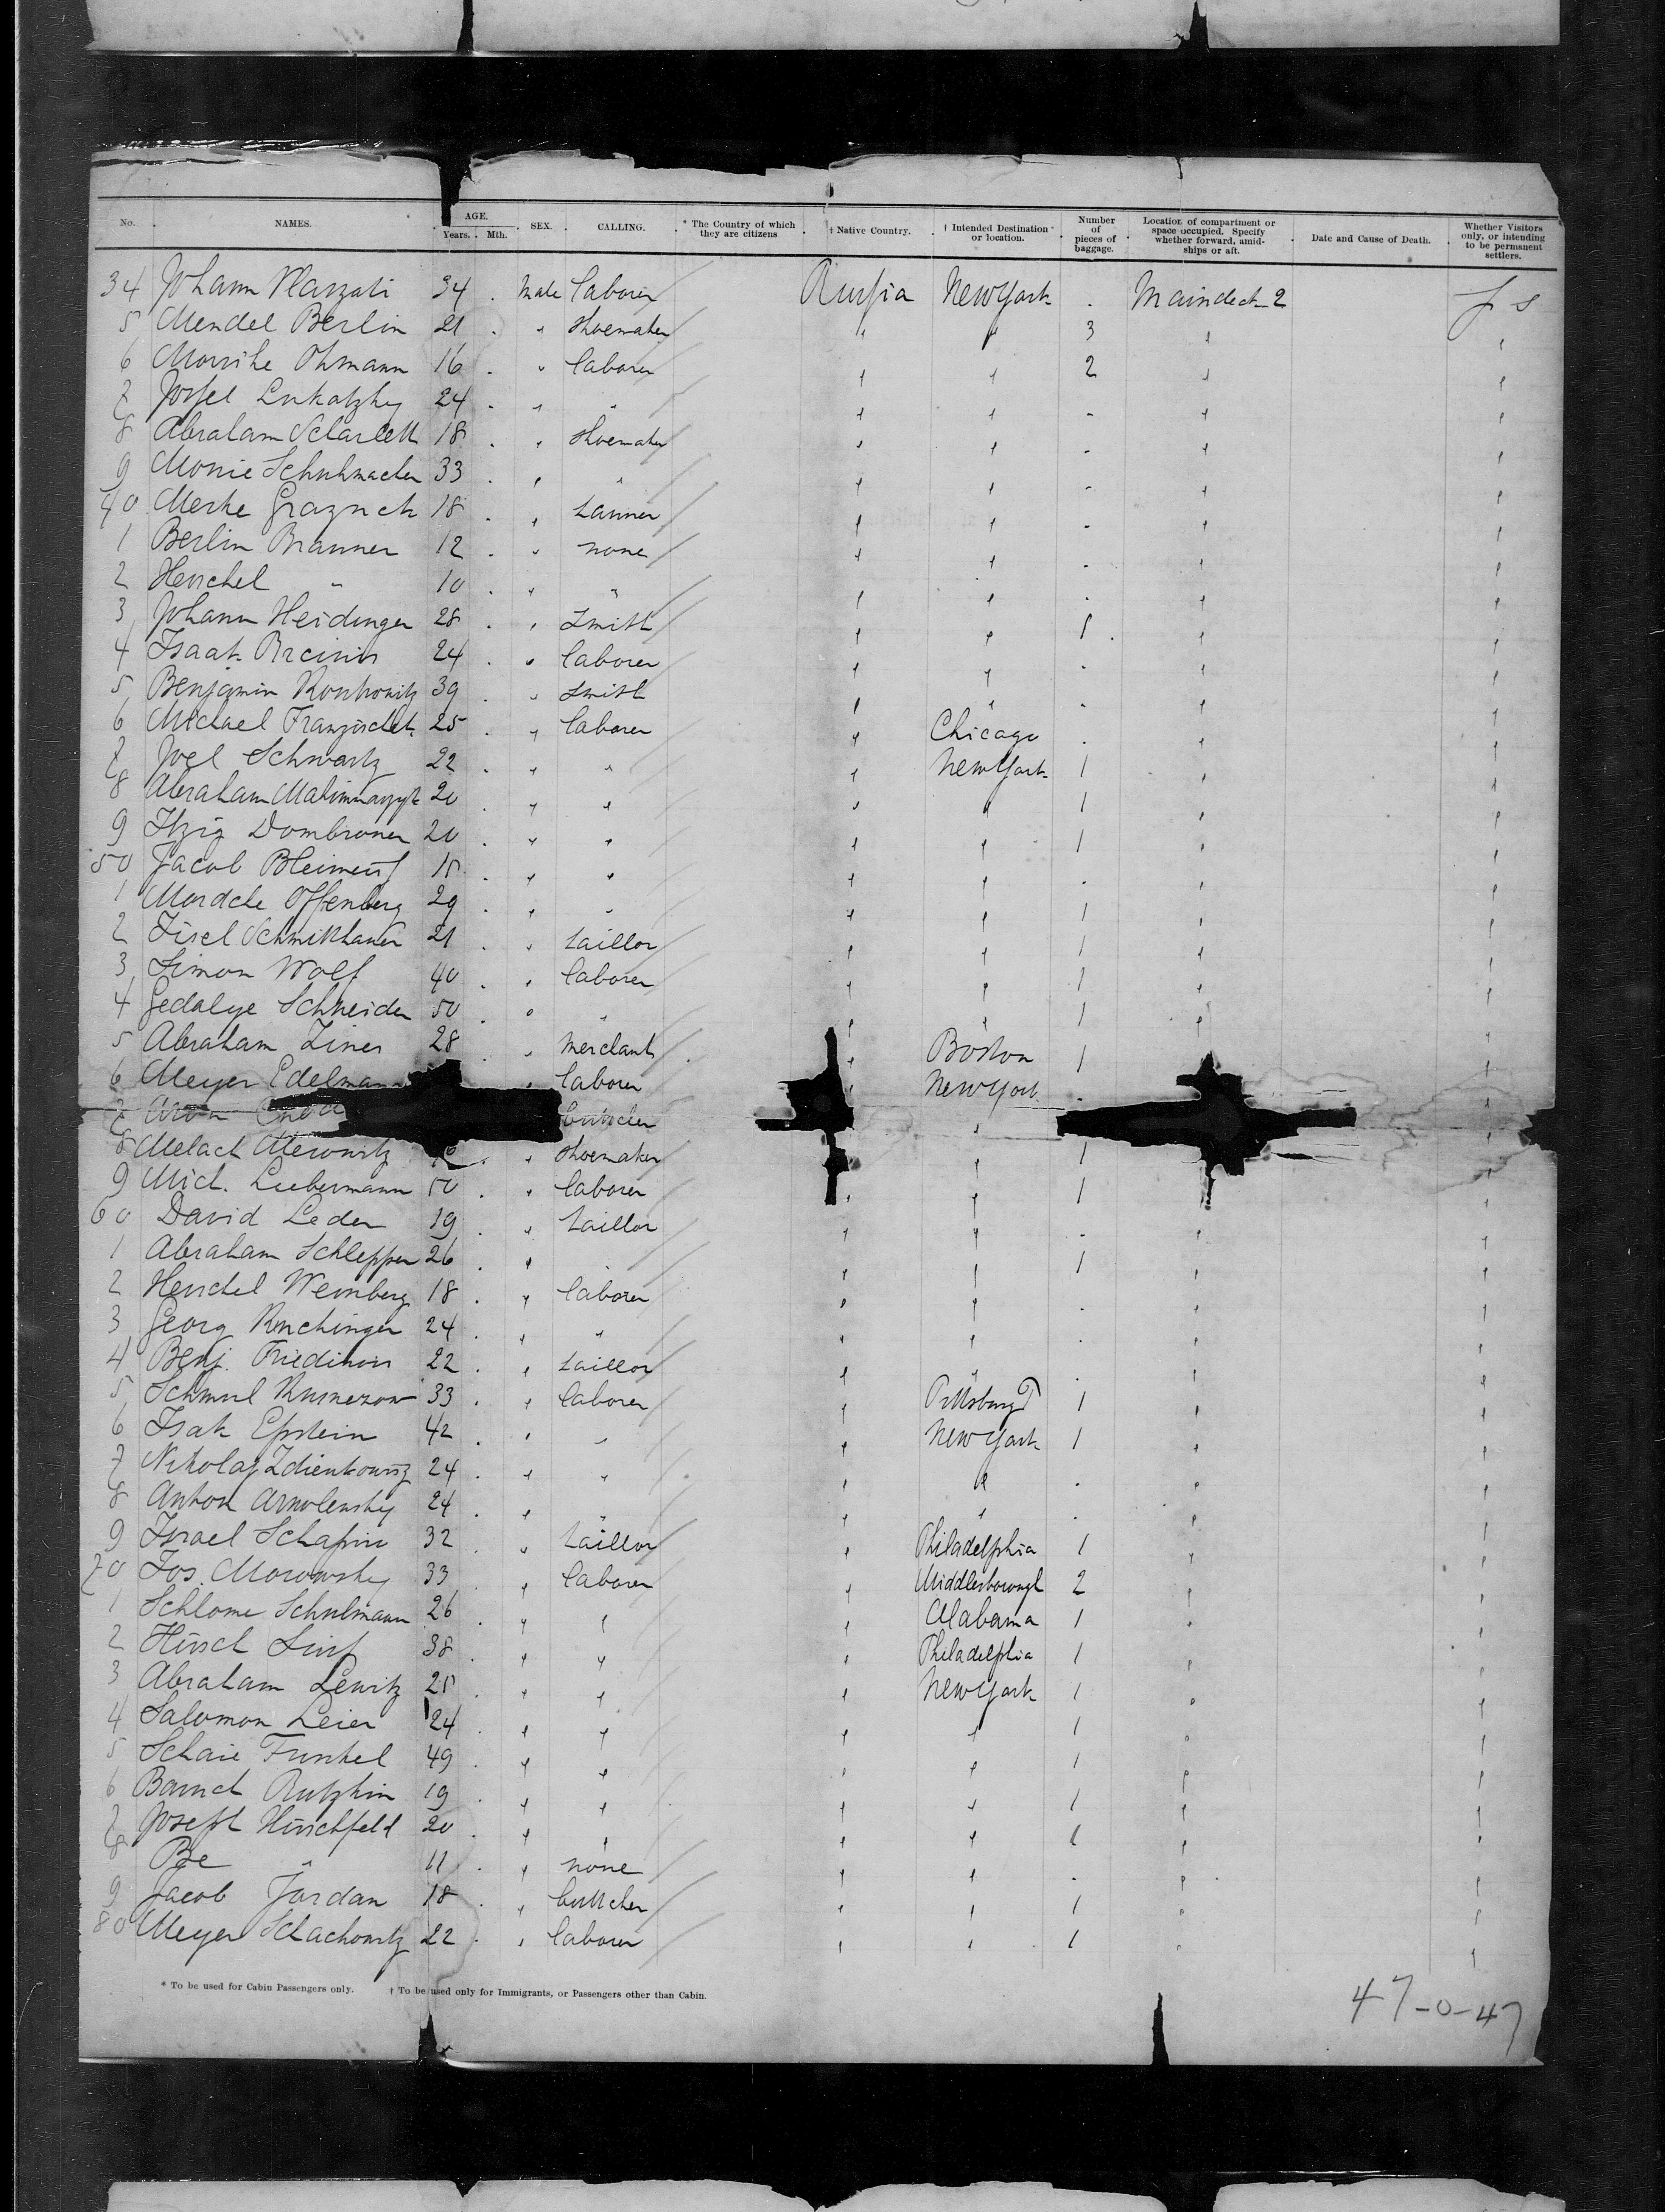 No. NAMES. AGE. Years. Mth. SEX. CALLING. * The Country of which they are citizens † Native Country. † Intended Destination or location. Number of pieces of baggage. Location of compartment or space occupied. Specify whether forward, amidships or aft. Date and Cause of Death. Whether Visitors only, or intending to be permanent settlers.
34 Johann 34 Male laborer Russia New York Maindeck 2
5 Mendel Berlin 21 " shoemaker " " 3 " "
6 Ohmann 16 " laborer " " 2 " "
7 24 " " " " " "
8 Abraham 18 " shoemaker " " " "
9 Monie Schuhmacher 33 " " " " " "
40 Merke 18 " tanner " " " "
1 Berlin Branner 12 " none " " " "
2 Herschel " 10 " " " " " "
3 Johann Heidinger 28 " Smith " " 1 " "
4 Isaak 24 " laborer " " " "
5 Benjamin 39 " Smith " " " "
6 Michael 25 " laborer " Chicago " "
7 Joel Schwartz 22 " " " New York 1 " "
8 Abraham 20 " " " " 1 " "
9 Itzig Dombrower 20 " " " " 1 " "
50 Jacob 15 " " " " " "
1 Mordche Offenberg 29 " " " " 1 " "
2 21 " taillor " " 1 " "
3 Simon Wolf 40 " laborer " " 1 " "
4 Gedalye Schneider 50 " " " " 1 " "
5 Abraham 28 " merchant " Boston 1 " "
6 Meyer Edelmann " laborer " New York " "
7 Aron " "
8 Melach Merowitz " shoemaker " 1 "
9 Mich. Liebermann 50 " laborer " " 1 "
60 David Leder 19 " taillor " " " "
1 Abraham Schlepper 26 " " " " 1 " "
2 Herschel Weinberg 18 " laborer " " " "
3 Georg 24 " " " " " "
4 Benj. 22 " taillor " " " "
5 Schmul 33 " laborer " Pittsburg 1 " "
6 Isak Epstein 42 " " " New York 1 " "
7 Nikolaj 24 " " " " " "
8 Anton 24 " " " " " "
9 Israel Schapiro 32 " taillor " Philadelphia 1 " "
70 Jos. Morowsky 33 " laborer " Middlesborough 2 " "
1 Schlome Schulmann 26 " " " Alabama 1 " "
2 Hirsch 38 " " " Philadelphia 1 " "
3 Abraham Lewitz 25 " " " New York 1 " "
4 Salomon Leier 24 " " " " 1 " "
5 Schaie Funkel 49 " " " " 1 " "
6 Baruch 19 " " " " 1 " "
7 Joseph Hirschfeld 20 " " " " 1 " "
8 Be " 11 " none " " " "
9 Jacob Jordan 18 " buttcher " " 1 " "
80 Meyer Schachowitz 22 " laborer " " 1 " "
* To be used for Cabin Passengers only. † To be used only for Immigrants, or Passengers other than Cabin.
47-0-47